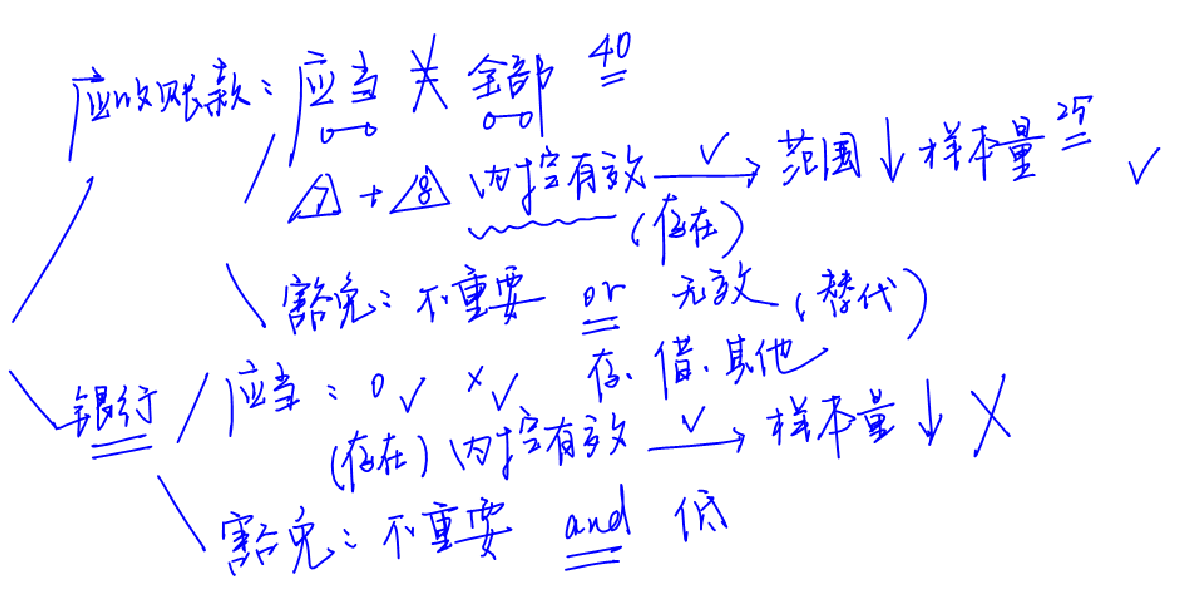 应收账款: 应当 全部 40
△7 + △8 内控有效 ✓→ 范围↓ 样本量 25 ✓
(存在)
豁免: 不重要 or 无效 (替代)
银行 应当: 0✓ ×✓ 存.借.其他
(存在) 内控有效 ✓→ 样本量↓ ×
豁免: 不重要 and 低